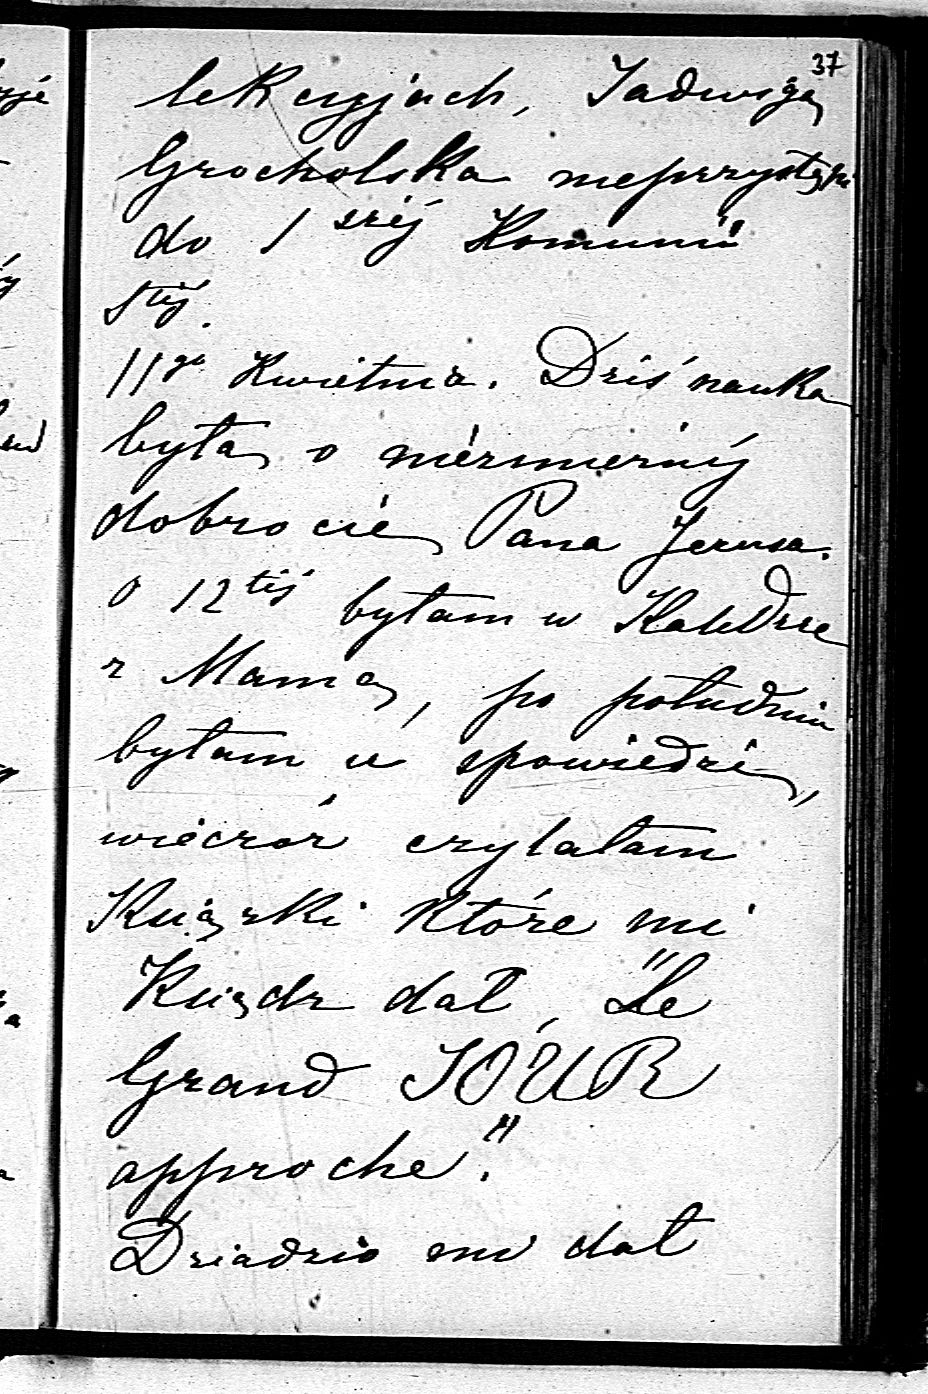 37
lekcyjach, Jadwiga
Grocholska nieprzystępu
do 1széj Komunii
Stéj.
11go Kwietnia. Dziś nauka
była o niézmierńij
dobrocie Pana Jezusa.
o 12téj byłam w Katedrze
z Mamą, po południu
byłam u spowiedzi,
wieczór czytałam
Książki które mi
Ksiądz dał, "Le
Grand JOUR
approche".
Dziadzio mi dał